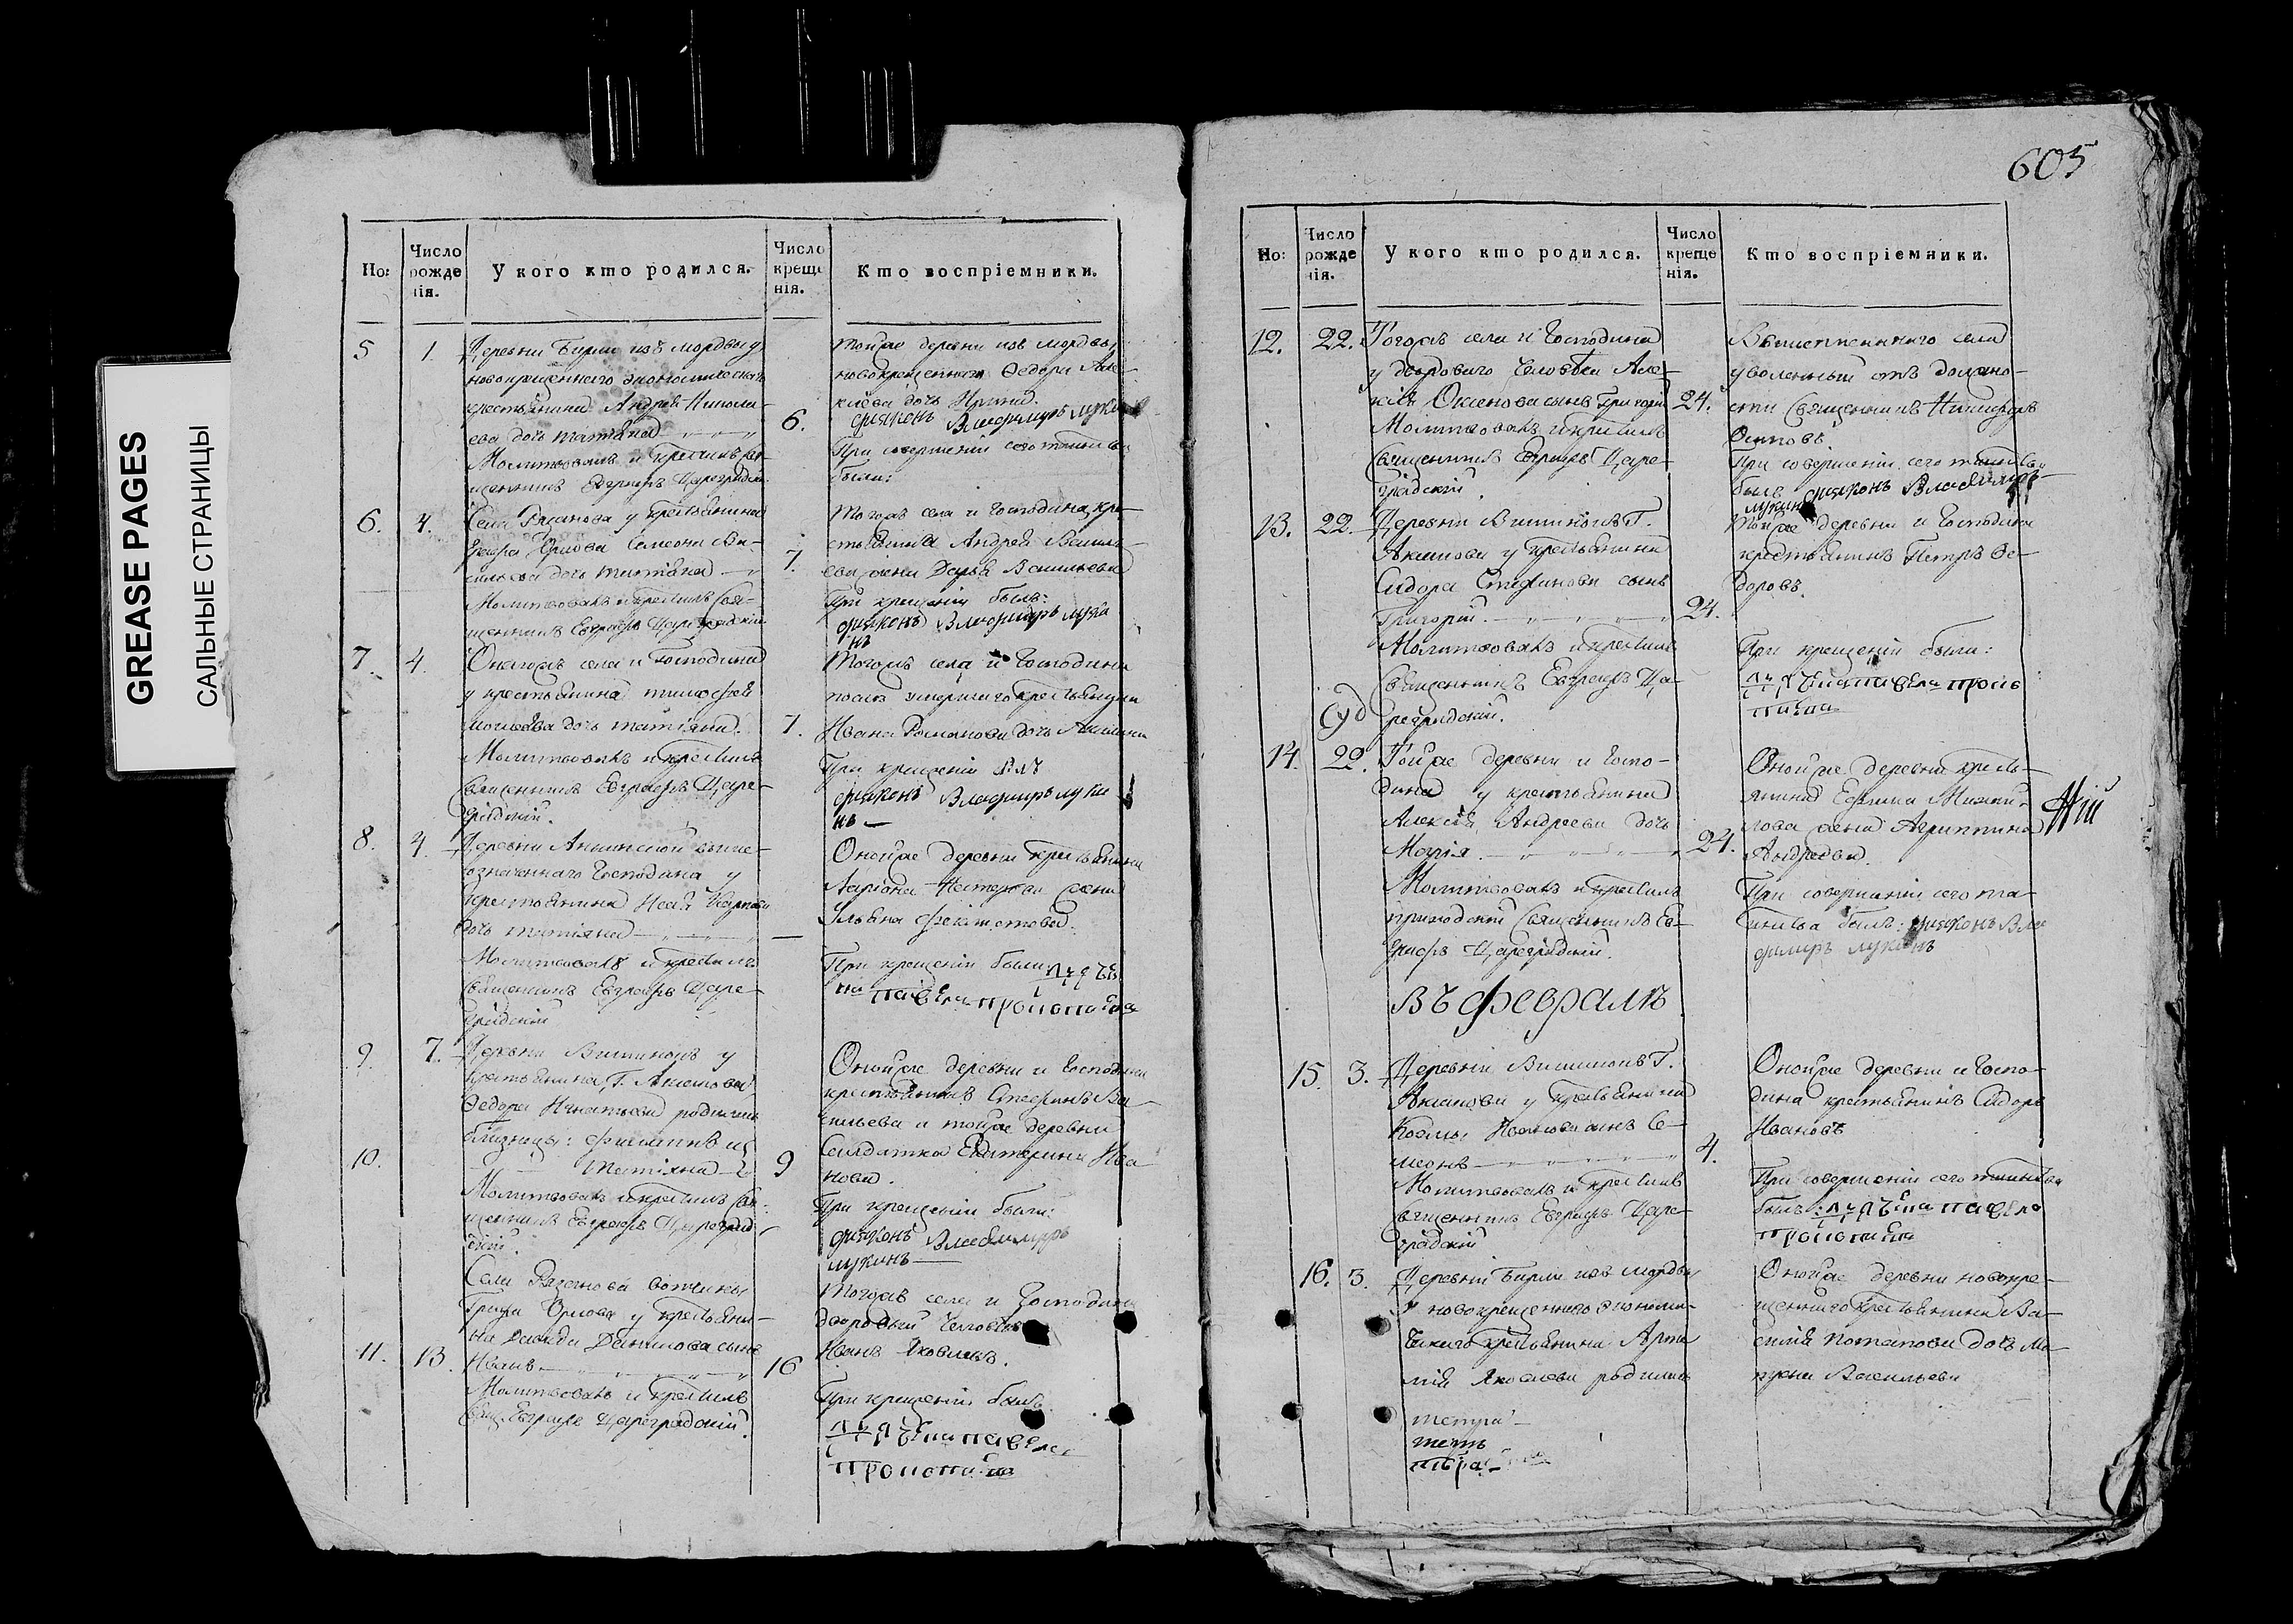 GREASE PAGES
САЛЬНЫЕ СТРАНИЦЫ
Но:
Число рожде нія.
У кого кто родился.
Число креще нія.
Кто воспріемники.
5
1.
Деревни Бирли изъ мордвы у
новокрещеннаго экономическаго
крестьянина Андрея Никола-
ева дочь Татіана
Молитвовалъ и крестилъ свя-
щенникъ Евграфъ Цареградскій
6.
Тойже деревни изъ мордвы
новокрещеннаго Ѳедора Але-
ксѣева дочь Ирина.
діяконъ Владимиръ Лукинъ
При совершеніи сего таинства
были:
6.
4.
Села у крестьянина
Графа Орлова Симеона Ва-
сильева дочь Татіана
Молитвовалъ и крестилъ свя-
щенникъ Евграфъ Цареградскій
7.
Тогожъ села и Господина, кре-
стьянина Андрея Василь-
ева жена Дарья Васильева
При крещеніи былъ:
діяконъ Владимиръ Луки
нъ
7.
4.
Онагожъ села и Господина
у крестьянина Тимофея
Моисѣева дочь Татіана.
Молитвовалъ и крестилъ
Священникъ Евграфъ Царе-
градскій.
7.
Тогожъ села и Господина
послѣ умершаго крестьянина
Ивана Романова дочь
При крещеніи былъ
діяконъ Владимиръ Луки
нъ
8.
4.
Деревни выше-
означеннаго Господина у
крестьянина Исая Карпова
дочь Татіана
Молитвовалъ и крестилъ
Священникъ Евграфъ Царе-
градскій
Онойже деревни крестьянина
Ларіона Нестерова жена
Ульяна
При крещеніи были
9.
7.
Деревни Вишинокъ у
крестьянина, Г. Акимова
Ѳедора Игнатьева родились
близнецы: Филиппъ и
10.
Татіана
Молитвовалъ и крестилъ Свя-
щенникъ Евграфъ Цареград-
скій.
9
Онойже деревни и Господина
крестьянинъ Стефанъ Ва-
сильева и тойже деревни
Солдатка Екатерина Ива
нова.
При крещеніи были:
діяконъ Владимиръ
Лукинъ
11.
13.
Села вотчины
Графа Орлова у крестьяни-
на Данилова сынъ
Иванъ
Молитвовалъ и крестилъ
Свящ. Евграфъ Цареградскій.
16
Тогожъ села и Господина
дворовый человѣкъ
Иванъ Яковлевъ.
При крещеніи былъ
605
Но:
Число рожде нія.
У кого кто родился.
Число креще нія.
Кто воспріемники.
12.
22.
Тогожъ села и Господина
у двороваго человѣка Але-
ксѣя сынъ Григорій
Молитвовалъ и крестилъ
Священникъ Евграфъ Царе-
градскій.
24.
Вышеписаннаго села
уволенный отъ должно-
сти Священникъ Никифоръ
При совершеніи сего таинства
былъ діяконъ Владимиръ
Лукинъ
13.
22.
Деревни Вишинокъ Г.
Акимова у крестьянина
Сидора Стефанова сынъ
Григорій.
Молитвовалъ и крестилъ
Священникъ Евграфъ Ца-
реградскій.
24.
Тойже деревни и Господина
крестьянинъ Петръ Ѳе-
доровъ.
При крещеніи были:
14.
22.
Тойже деревни и Госпо-
дина у крестьянина
Алексѣя Андреева дочь
Марія
Молитвовалъ и крестилъ
приходскій Священникъ Ев-
графъ Цареградскій.
24.
Онойже деревни кресть-
янина Ефима Михай-
лова жена Агриппина
Андреева.
При совершеніи сего та-
инства былъ: діяконъ Вла
димиръ Лукинъ
Въ Февралѣ
15.
3.
Деревни Вишинокъ Г.
Акимова у крестьянина
Козмы Иванова сынъ Се-
меонъ
Молитвовалъ и крестилъ
Священникъ Евграфъ Царе-
градскій
4.
Онойже деревни и Госпо-
дина крестьянинъ Сидоръ
Ивановъ
При совершеніи сего таинства
былъ:
16.
3.
Деревни Бирли изъ мордвы
у новокрещеннаго экономи-
ческаго крестьянина
Яковлева родились
Онойже деревни новокре-
щеннаго крестьянина Ва-
силія Потапова дочь Ма-
трена Васильева